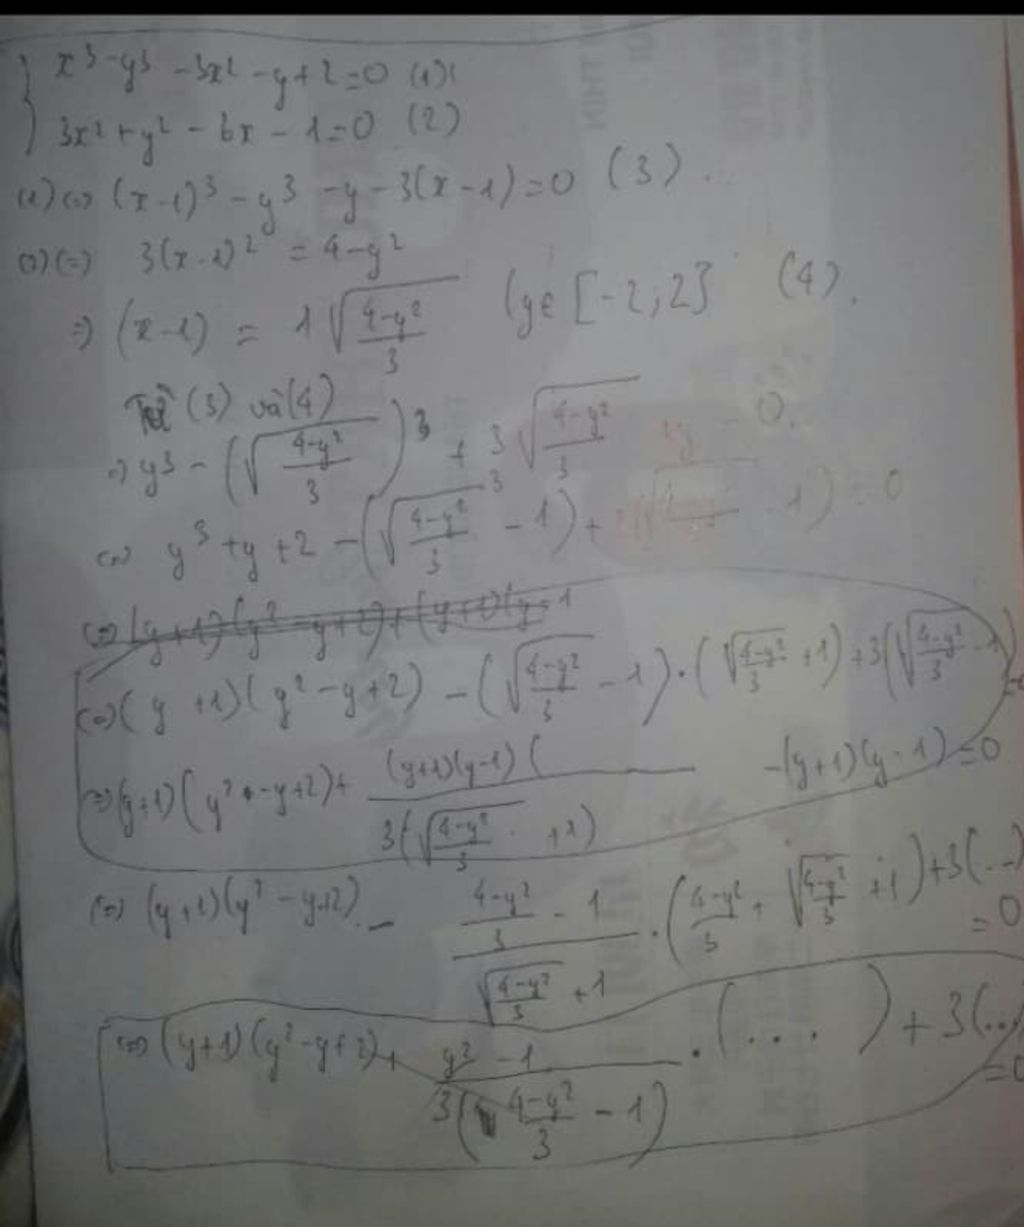 x³ - y³ - 3x² - y + 2 = 0 (1)
3x² + y² - 6x - 1 = 0 (2)
(1) ⇔ (x-1)³ - y³ - y - 3(x-1) = 0 (3).
(2) ⇔ 3(x-1)² = 4-y²
⇒ (x-1) = 1√((4-y²)/3) (y∈ [-2;2] (4).
Từ (3) và (4)
⇒ y³ - (√((4-y²)/3))³ + 3√((4-y²)/3) + y = 0.
⇔ y³ + y + 2 - (√((4-y²)/3)³ - 1) + 3(√((4-y²)/3) - 1) = 0
⇔ (y+1)(y² - y+2) + (y+1)(y-1
⇔ (y+1)(y² - y+2) - (√((4-y²)/3) - 1).(√((4-y²)/3) + 1) + 3(√((4-y²)/3) - 1)
⇔ (y+1)(y² - y+2) + (y+1)(y-1)( / 3(√((4-y²)/3) + 1) - (y+1)(y-1) = 0
⇔ (y+1)(y² - y+2) - ((4-y²)/3 - 1)/(√((4-y²)/3) + 1) . ((4-y²)/3 + √((4-y²)/3) + 1) + 3(...) = 0
⇔ (y+1)(y² - y+2) + (y² - 1)/(3(√((4-y²)/3) - 1)) . (...) + 3(...) = 0